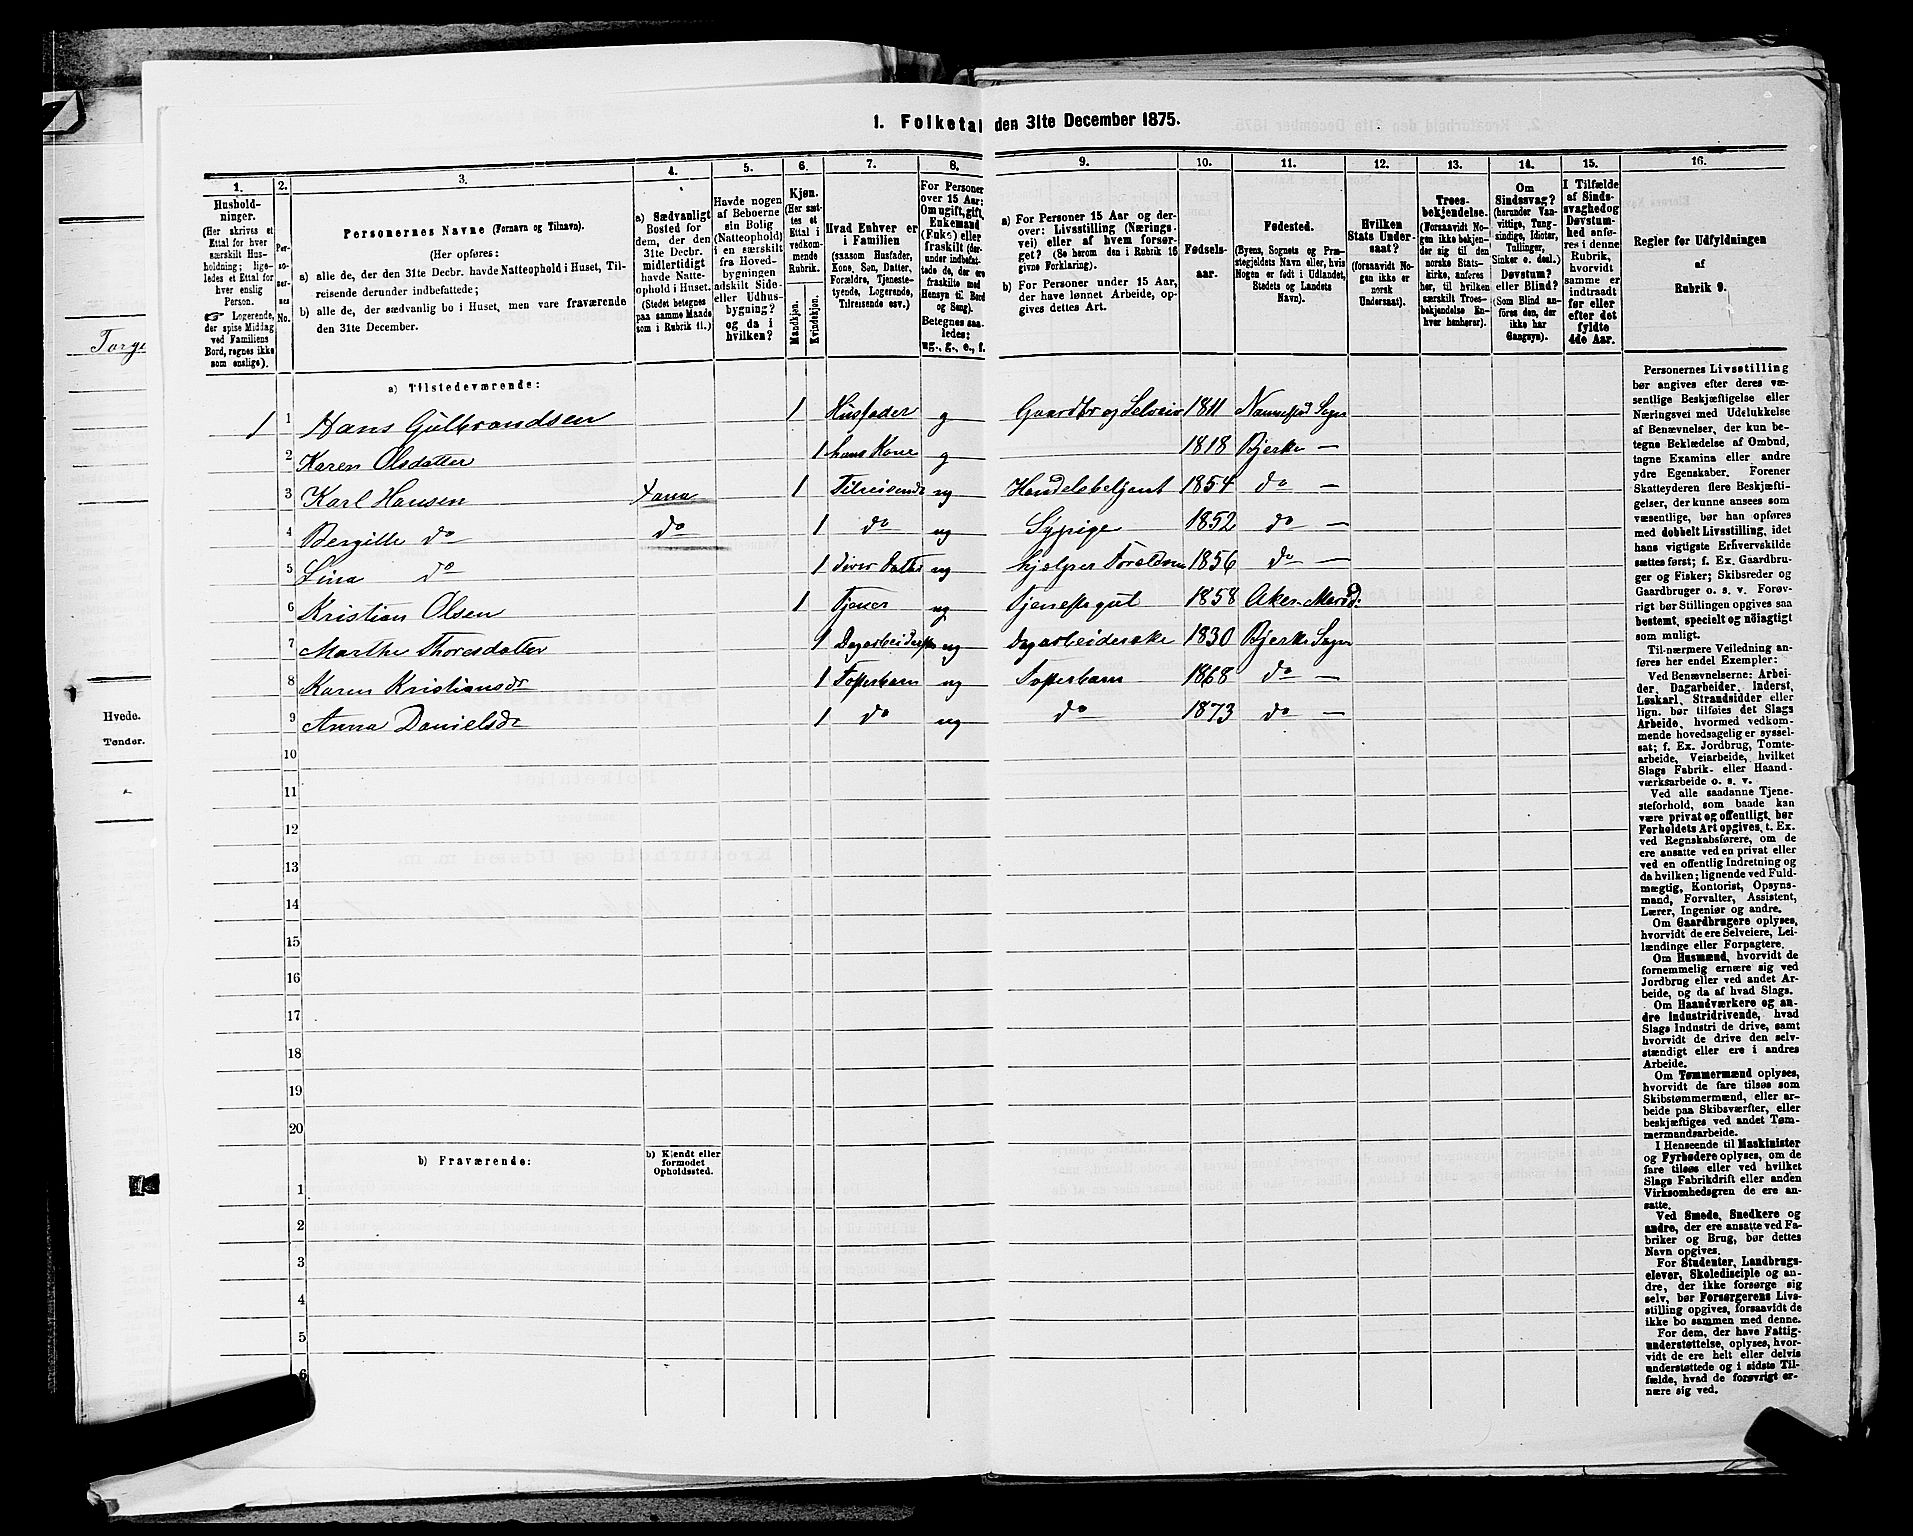 1. Folketal den 31te December 1875.
1. 2. 3. 4. 5. 6. 7. 8. 9. 10. 11. 12. 13. 14. 15. 16.
Husholdninger.
(Her skrives et
Ettal for hver
særskilt Husholdning; ligeledes et Ettal for
hver enslig
Person.
Logerende,
der spise Middag
ved Familiens
Bord, regnes ikke
som enslige).
Personernes No.
Personernes Navne (Fornavn og Tilnavn).
(Her opføres:
a) alle de, der den 31te Decbr. havde Natteophold i Huset, Tilreisende derunder indbefattede;
b) alle de, der sædvanlig bo i Huset, men vare fraværende
den 31te December.
a) Sædvanligt
Bosted for
dem, der den
31te Decbr.
midlertidigt
havde Natteophold i Huset.
(Stedet betegnes
paa samme Maade
som i Rubrik 11.)
Havde nogen
af Beboerne
sin Bolig
(Natteophold)
i en særskilt
fra Hovedbygningen
adskilt Side-
eller Udhusbygning?
og da i
hvilken?
Kjøn.
(Her sættes et
Ettal i
vedkommende
Rubrik.
Mandkjøn.
Kvindekjøn.
Hvad Enhver er
i Familien
(saasom Husfader,
Kone, Søn, Datter,
Forældre, Tjenestetyende, Logerende,
Tilreisende osv.)
For Personer
over 15 Aar:
Om ugift, gift,
Enkemand
(Enke) eller
fraskilt (derunder indbefattede de, der ere
fraskilte med
Hensyn til Bord
og Seng).
Betegnes saaledes;
ug., g., e., f.
a) For Personer 15 Aar og derover: Livsstilling (Næringsvei) eller af hvem forsørget? (Se herom den i Rubrik 16
givne Forklaring).
b) For Personer under 15 Aar,
der have lønnet Arbeide, opgives dettes Art.
Fødselsaar.
Fødested.
(Byens, Sognets og Præstegjeldets Navn eller, hvis
Nogen er født i Udlandet,
Stedets og Landets
Navn).
Hvilken
Stats Undersaat?
(forsaavidt Nogen ikke er
norsk
Undersaat).
Troesbekjendelse.
(Forsaavidt Nogen ikke bekjender sig til den
norske Statskirke, anføres
her, til hvilken
særskilt Troesbekjendelse Enhver henhører).
Om
Sindssvag?
(herunder Vanvittige, Tungsindige, Idioter,
Tullinger,
Sinker o. desl.)
Døvstum?
eller Blind?
(Som Blind anføres den, der
ikke har
Gangsyn).
I Tilfælde
af Sindssvaghed og
Døvstumhed anføres i denne
Rubrik,
hvorvidt
samme er
indtraadt
før eller
efter det
fyldte
4de Aar.
Regler for Udfyldningen
af
Rubrik 9.
a) Tilstedeværende:
1 1 Hans Gulbrandsen 1 Husfader g Gaardbr og Selveier 1811 Nannestad Sogn
2 Karen Olsdatter 1 hans Kone g 1818 Bjerke —
3 Karl Hansen 1 Tilreisende ug Handelsbetjent 1854 do —
4 Bergitte do do 1 do ug Sypige 1852 do —
5 Lina do 1 Datter ug hjelper Foreldrene 1856 do —
6 Kristian Olsen 1 Tjener ug Tjenestegut 1858 Aker
7 Marthe Thoresdatter 1 ug Dagarbeiderske 1830 Bjerke Sogn
8 Karen Kristiansdr 1 Fosterbarn ug Fosterbarn 1868 do —
9 Anna Danielsdr 1 do ug do 1873 do —
10
11
12
13
14
15
16
17
18
19
20
b) Fraværende:
b) Kjendt eller
formodet
Opholdssted.
1
2
3
4
5
6
Personernes Livsstilling
bør angives efter deres væsentlige Beskjæftigelse eller
Næringsvei med Udelukkelse
af Benævnelser, der kun betegne Beklædelse af Ombud,
tagne Examina eller andre
ydre Egenskaber. Forener
Skatteyderen flere Beskjæftigelser, der kunne ansees som
væsentlige, bør han opføres
med dobbelt Livsstilling, idet
hans vigtigste Erhvervskilde
sættes først; f. Ex. Gaardbruger og Fisker; Skibsreder og
Gaardbruger o. s. v. Forøvrigt bør Stillingen opgives saa
bestemt, specielt og nøiagtigt
som muligt.
Til nærmere Veiledning anføres her endel Exempler:
Ved Benævnelserne: Arbeider, Dagarbeider, Inderst,
Løskarl, Strandsidder eller
lign. bør tilføies det Slags
Arbeide, hvormed vedkommende hovedsagelig er sysselsat; f. Ex. Jordbrug, Tomtearbeide, Veiarbeide, hvilket
Slags Fabrik- eller Haandværksarbeide o. s. v.
Ved alle saadanne Tjenesteforhold, som baade kan
være privat og offentligt, bør
Forholdets Art opgives, t. Ex.
ved Regnskabsførere, om de
ere ansatte ved en privat eller
ved en offentlig Indretning og
da hvilken; lignende ved Fuldmægtig, Kontorist, Opsynsmand, Forvalter, Assistent,
Lærer, Ingeniør og andre.
Om Gaardbrugere oplyses,
hvorvidt de ere Selveiere, Leilændinge eller Forpagtere.
Om Husmænd, hvorvidt de
fornemmelig ernære sig ved
Jordbrug eller ved andet Arbeide, og da af hvad Slags.
Om Haandværkere og andre Industridrivende, hvad
Slags Industri de drive, samt
hvorvidt de drive den selvstændigt eller ere i andres
Arbeide.
Om Tømmermænd oplyses,
hvorvidt de fare tilsøs som
Skibstømmermænd, eller arbeide paa Skibsværfter, eller
beskjæftiges ved andet Tømmermandsarbeide.
I Henseende til Maskinister
og Fyrbødere oplyses, om de
fare tilsøs eller ved hvilket
Slags Fabrikdrift eller anden
Virksomhedsgren de ere ansatte.
Ved Smede, Snedkere og
andre, der ere ansatte ved Fabriker og Brug, bør dettes
Navn opgives.
For Studenter, Landbrugselever, Skoledisciple og andre, der ikke forsørge sig
selv, bør Forsørgerens Livsstilling opgives, forsaavidt de
ikke bo sammen med denne.
For dem, der have Fattigunderstøttelse, oplyses, hvorvidt de ere helt eller delvis
understøttede og i sidste Tilfælde, hvad de forøvrigt ernære sig ved.
Hvede.
Tønder.